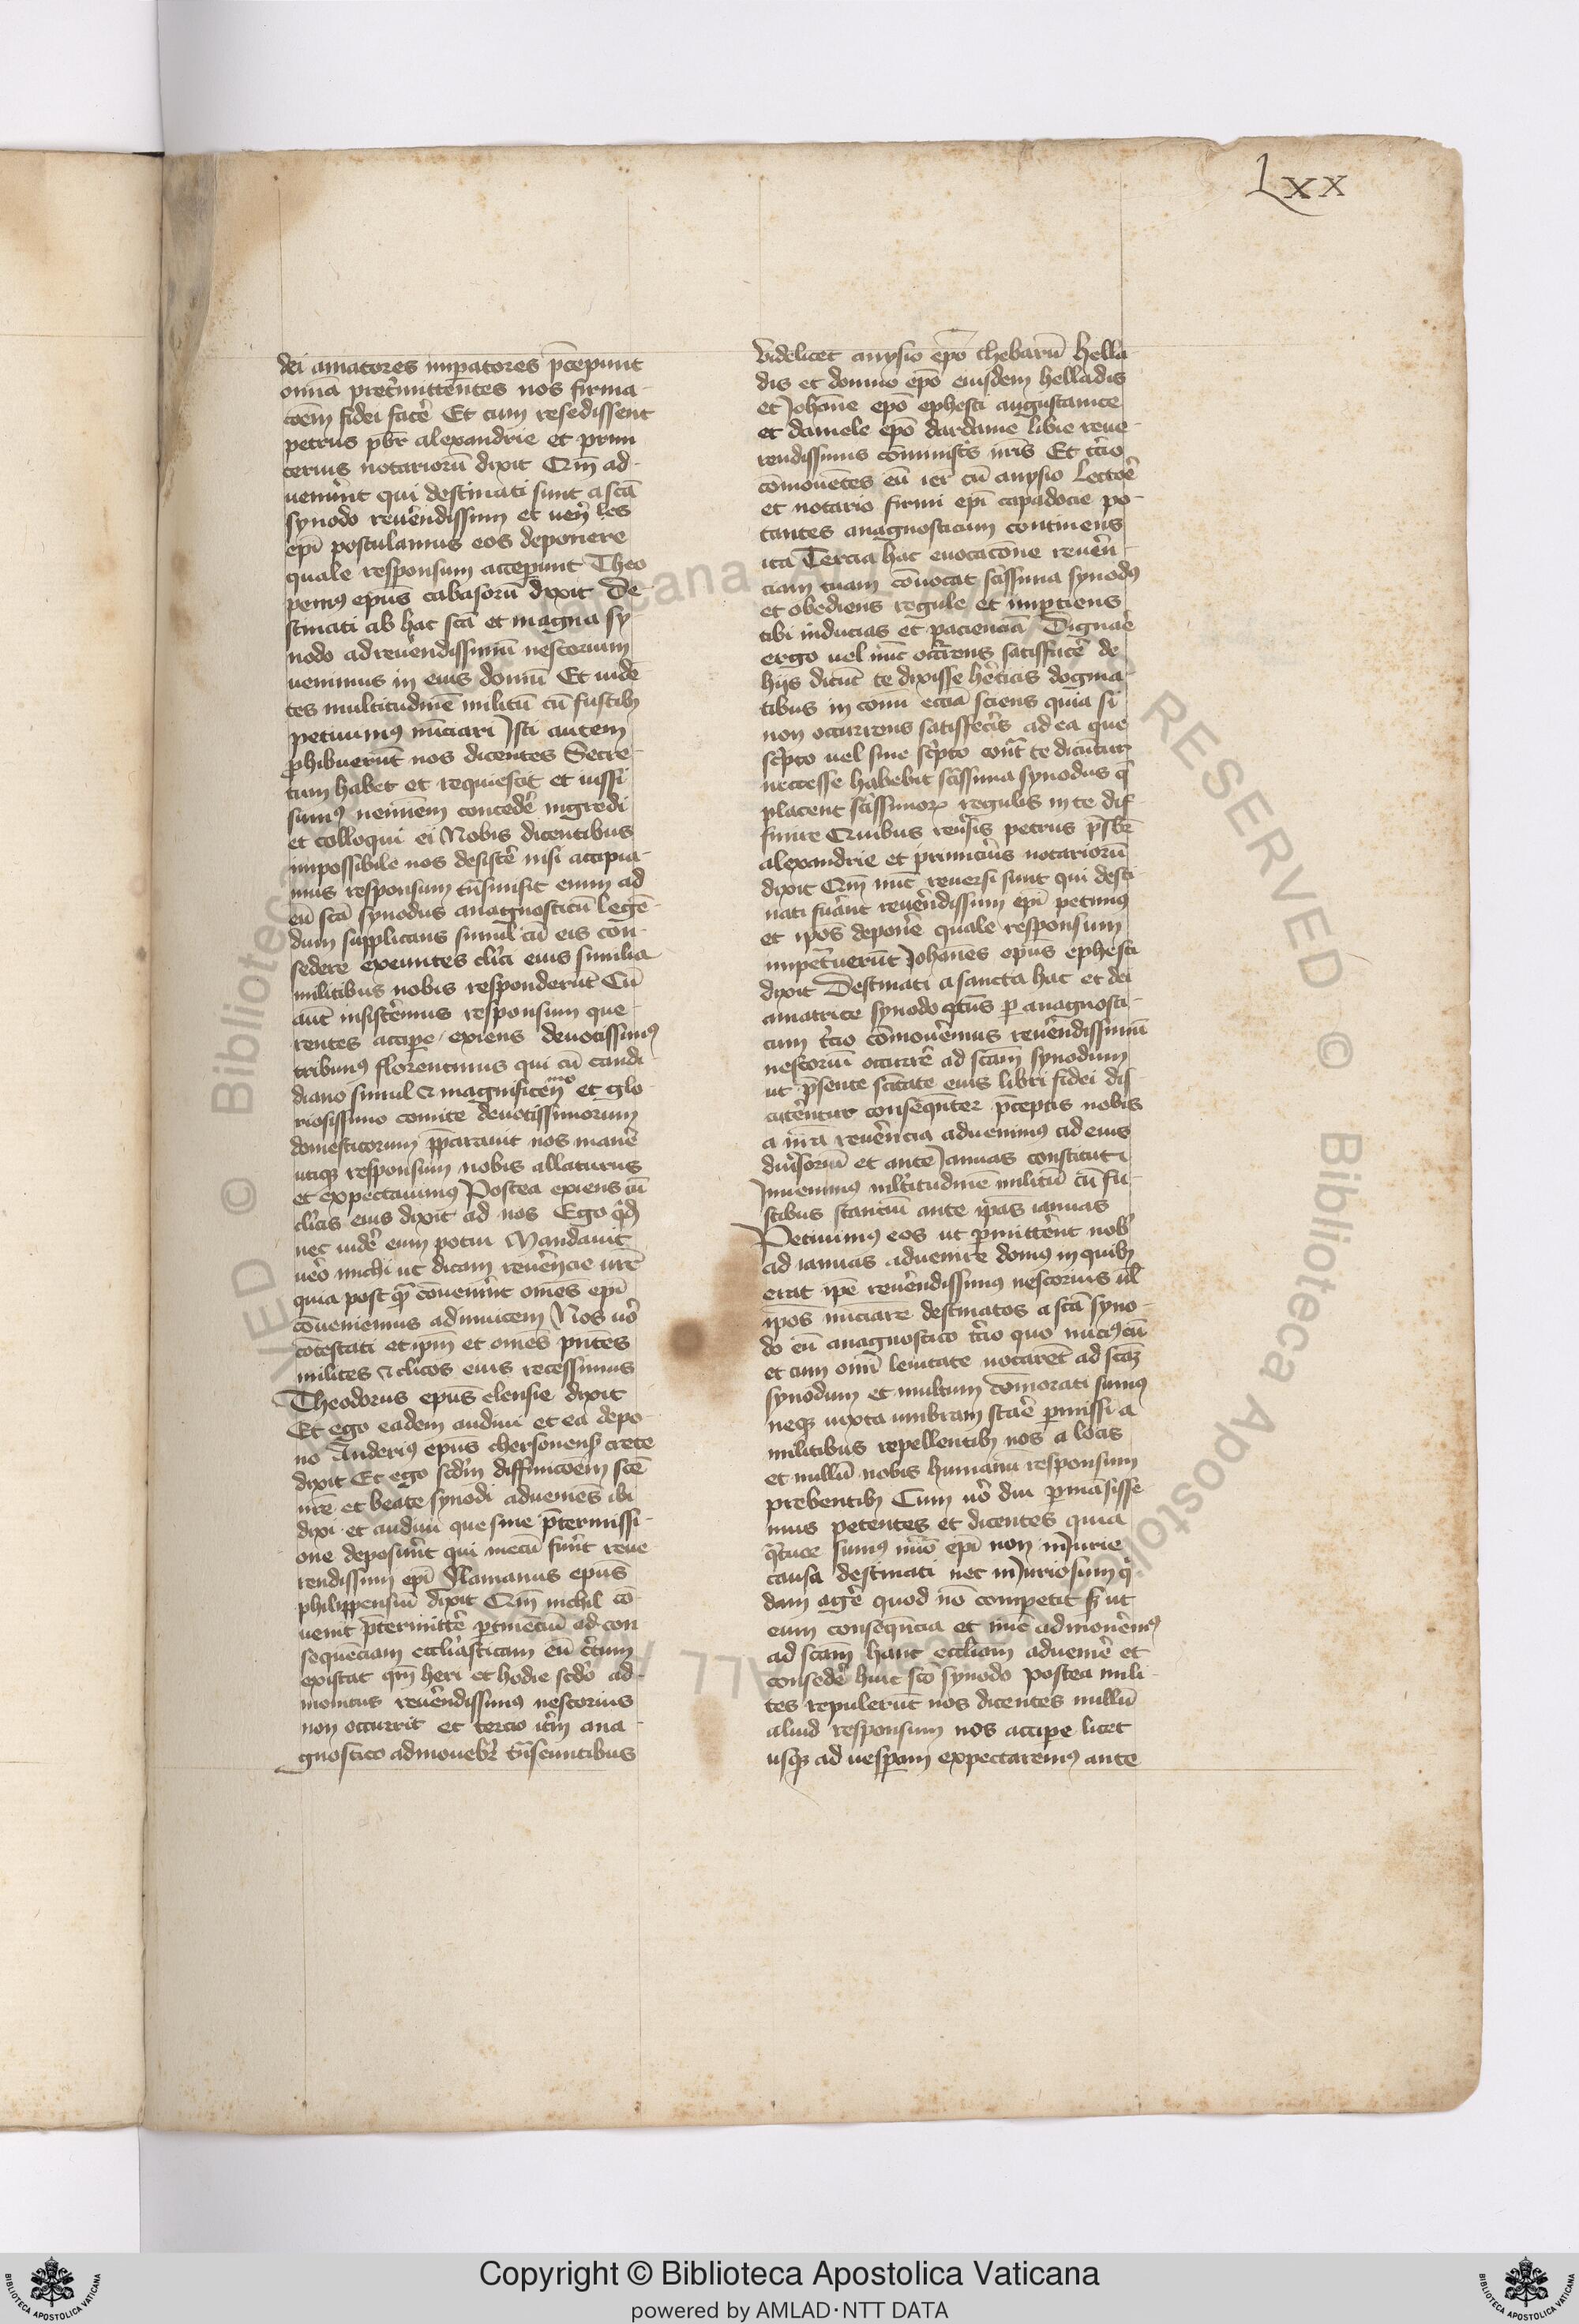 Lxx
dei amatores imꝑatores p̄cepunt
om̄ia pret̾mittentes nos firma-
c̄oem fidei fac̾e Et cum resedissent
petrus pb̄r alexandrie et prim
cerius notariorū dixit Qm̄ ad-
uenerūt qui destinati sunt a scā
synodo reuēndissimi et uen̾les
ep̄i postulamus eos deponere
quale responsum acceperunt Theo
pemꝰ ep̄us cabasorū dixit De-
stinati ab hac scā et magna sy-
nodo ad reuēndissimū nestorium
uenimus in eius domū Et uidē
tes multitudinē militū cū fustibꝫ
petiuimꝰ nūciari Isti autem
ꝓhibuerūt nos dicentes Secre-
tum habet et requiescit et iussi
sumꝰ neminem conced̾e ingredi
et colloqui ei Nobis dicentibus
impossibile nos desist̾e nisi accipia-
mus responsum trāsmisit enim ad
eū scā synodus anagnosticū legē-
dum supplicans simul cū eis con-
sedere exeuntes cl̾ici eius similia
militibus nobis responderūt Cū
aut̄ insist̾emus responsum que-
rentes accipe exiens deuotissimꝰ
tribunꝰ florentinus qui cū candi-
diano simul ⁊ magnificen̄mo et glo-
riosissimo comite deuotissimorum
domesticorum p̄parauit nos man̾e
utiqꝫ responsum nobis allaturus
et expectauimꝰ Postea exiens cū
cl̾icis eius dixit ad nos Ego q̾dē
nec uid̾e eum potui Mandauit
uēo michi ut dicam reuēncie ur̄e
quia post qm̄ cōuenerīt om̄es ep̄i
cōueniemus ad inuicem Nos uō
cōtestati et ip̄m et om̄es pn̄tes
milites ⁊ cl̾icos eius recessimus
Theodorus ep̄us elensie dixit
Et ego eadem audiui et ea depo-
no Anderiꝰ ep̄us chersonenſ crete
dixit Et ego scd̄m diffinic̄oem scē
nr̄e et beate synodi adueniēs ibi
dixi et audiui que sine p̄termissi-
one deposuer̄t qui mecū fuer̄t reue-
rendissimi ep̄i Flamanus ep̄us
philippensiū dixit Qm̄ nichil cō-
uenit p̄termitt̾e ꝑtinēciū ad con-
sequēciam eccl̾iasticam eū c̾tum
existat qm̄ heri et hodie scd̄o ad-
monitus reuēndissimꝰ nestorius
non occurrit et tercio it̾m ana-
gnostico admouebit̾ trāseuntibus
Videlicet anysio ep̄o thebarū hella-
dis et domno ep̄o eiusdem helladis
et Johāne ep̄o ephesti augustanice
et daniele ep̄o dardanie libie reue-
rendissimis cōministris nr̄is Et t̾cio
cōmouētes eū iei cū anysio Lector̾e
et notario firmi ep̄i capadocie po-
tantes anagnosticum continens
ita Tercia hac euocac̄one reuēn-
ciam tuam cōuocat sc̄issima synodꝰ
et obediens regule et imꝑtiens
tibi inducias et paciencia Dignar̾e
ergo uel nūc occurrens satisfac̾e de
hijs dicūt te dixisse h̾eticis dogma-
tibus in com̄i ecc̄ia sciens quia si
non occurrens satisfec̾is ad ea que
sc̾pto uel sine sc̾pto cont̾ te dicūtur
necesse habebit sc̄issima synodus q̄
placent sc̄issimoꝝ regulis in te dif-
finire Quibus reuersis petrus p̄sbr
alexandrie et primicerius notariorū
dixit Qm̄ nūc reuersi sunt qui desti-
nati fuer̄ūt reuēndissimi ep̄i petimꝰ
et ip̄os depon̾e quale responsum
impet̾uerūt Johānes ep̄us ephesti
dixit Destinati a sancta hac et dei
amatrice synodo q̾tus ꝑ anagnosti-
cum t̾cio cōmouēmus reuēndissimū
nestoriū occurr̾e ad scāam synodum
ut p̄sente sc̄itate eius libri fidei dis-
cut̾entur consequenter p̄ceptis nobis
a nr̄a reuēncia aduenimꝰ ad eius
diu̾soriū et ante Januas constituti
Inuenimꝰ ml̾titudinē militū cū fu-
stibus stanciū ante ip̄as ianuas
Petiuimꝰ eos ut ꝑmitt̾ent nob̾
ad ianuas aduenire domꝰ in quibꝫ
erat ip̄e reuēndissimꝰ nestorius ul̾
ip̄os nūciare destinatos a scā syno-
do eū anagnostico t̾cio quo nūciꝰ cū
et cum om̄i lenitate uocarēt ad scāꝫ
synodum et multum cōmorati sumꝰ
neqꝫ iuxta umbram sta̾e ꝑmissi a
militibus repellentibꝫ nos a locis
et nullū nobis humanū responsum
prebentibꝫ Cum uō diu ꝑmāsisse-
mus petentes et dicentes quia
q̾tuor sumꝰ nūo ep̄i non iniurie
causa destinati nec iniuriosum q̾-
dam ag̾e quod nō competit ſ ut
eum consequēcia et nūc admonēmꝰ
ad scāam hanc eccl̾iam aduenir̾e et
consed̾e huic scē synodo postea mili-
tes repulerūt nos dicentes nullū
aliud responsum nos accipe licet
usqꝫ ad uesꝑam expectaremꝰ ante
Copyright © Biblioteca Apostolica Vaticana
powered by AMLAD·NTT DATA